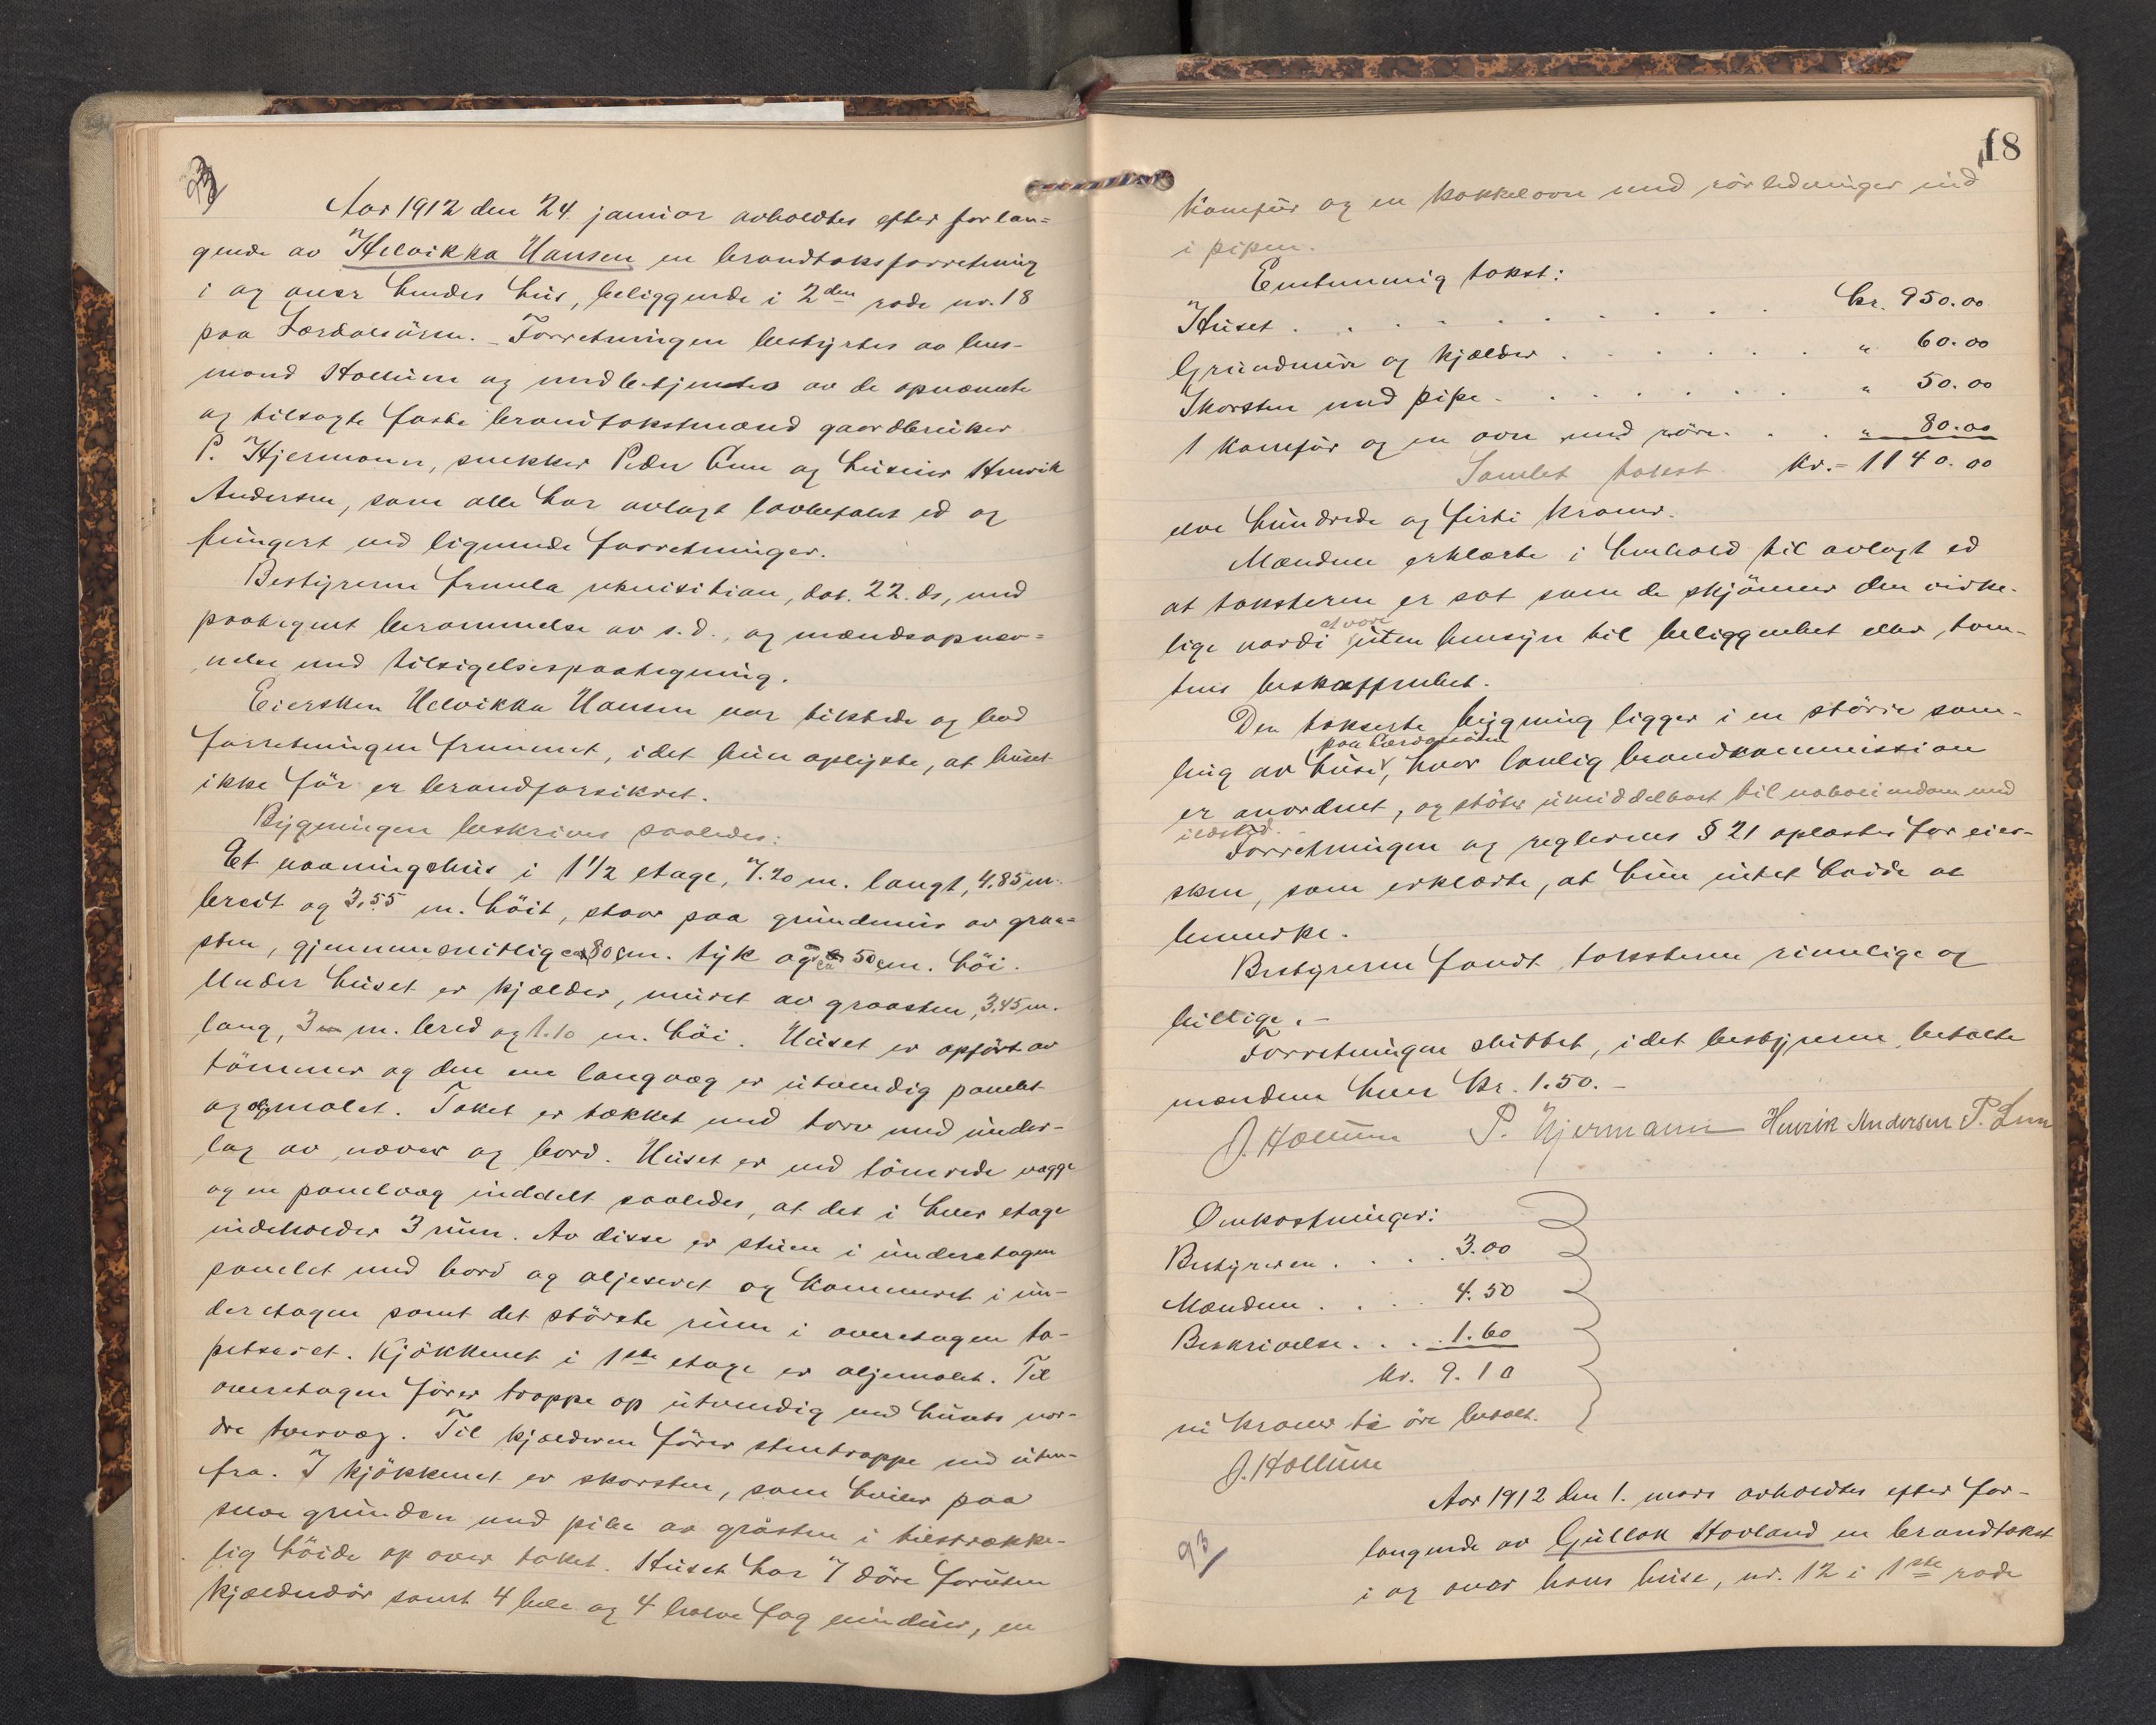 Aar 1912 den 24 januar avholdtes efter forlan=
gende av Helvikka Hansen en brandtaksforretning
i og over hendes hus, beliggende i 2den rode nr. 18
paa Lærdalsören. - Forretningen bestyrtes av lens-
mand Hollum og medbetjentes av de opnævnte
og tilsagte faste brandtakstmænd gaardbruker
P. Hjermann, snekker Peder Lun og huseier Henrik
Andersen, som alle har avlagt lovbefalet ed og
fungert ved lignende forretninger.
Bestyreren fremla rekvisition, dat. 22. ds, med
paategnet berammelse av s.d., og mændsopnæv=
nelse med tilsigelsespaategning.
Eiersken Helvikka Hansen var tilstede og bad
forretningen fremmet, idet hun oplyste, at huset
ikke för er brandforsikret.
Bygningen beskrives saaledes:
Et vaaningshus i 1 1/2 etage, 7.20 m. langt, 4.85 m.
bredt og 3.55 m. höit, staar paa grundmur av graa=
sten, gjennemsnitlig ca 80 cm. tyk og ca 50 cm. höi.
Under huset er kjælder, muret av graasten, 3.45 m.
lang, 3 m. bred og 1.10 m. höi. Huset er opfört av
tömmer og den ene langvæg er utvendig panelt
og oljemalet. Taket er tækket med torv med under-
lag av næver og bord. Huset er ved tömrede vægge
og en panelvæg inddelt saaledes, at det i hver etage
indeholder 3 rum. Av disse er stuen i underetagen
panelet med bord og oljeferet og kammeret i un-
deretagen samt det störste rum i overetagen ta-
petseret. Kjökkenet i 1ste etage er oljemalet. Til
overetagen förer trappe op utvendig ved husets nor-
dre tvervæg. Til kjælderen förer stentrappe ned uten-
fra. I kjökkenet er skorsten, som hviler paa
selve grunden med pibe av gråsten i tilstrække-
lig höide op over taket. Huset har 7 döre foruten
kjælderdör samt 4 hele og 4 halve fag vinduer, en
18
komfur og en kakkelovn med rörledninger ind
i pipen.
Enstemmig takst:
Huset . . . . . . . . . . kr. 950.00
Grundmur og kjælder . . . . . . " 60.00
Skorsten med pipe . . . . . . . " 50.00
1 komfur og en ovn med rör . . . " 80.00
Samlet takst kr. = 1140.00
elve hundrede og firti kroner.
Mændene erklærte i henhold til avlagt ed
at taksterne er sat som de skjönner den virke-
at være
lige værdi uten hensyn til beliggenhet eller tom-
tens beskaffenhet.
Den takserte bygning ligger i en större sam-
paa Lærdalsören
ling av huse, hvor lovlig brandkommission
er anordnet, og stöter umiddelbart til naboeiendom med
ildsted.
Forretningen og reglernes § 21 oplæstes for eier-
sken, som erklærte, at hun intet hadde at
bemerke.
Bestyreren fandt taksterne rimelige og
billige. -
Forretningen sluttet, idet bestyreren betalte
mændene hver kr. 1.50. -
J. Hollum P. Hjermann Henrik Andersen P. Lun
Omkostninger:
Bestyreren . . . . 3.00
Mændene . . . . 4.50
Beskrivelse . . . . 1.60
kr. 9.10
ni kroner ti öre betalt.
J. Hollum
Aar 1912 den 1. mars avholdtes efter for-
93
langende av Gullak Hovland en brandtakst
i og over hans huse, nr. 12 i 1ste rode